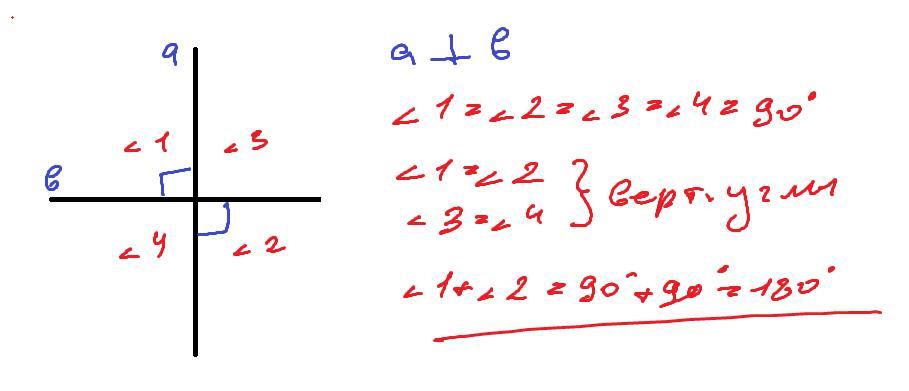 а
∠1 ∠3
в
∠4 ∠2
а ⊥ в
∠1=∠2=∠3=∠4=90°
∠1=∠2
∠3=∠4
} верт. углы
∠1+∠2=90°+90°=180°